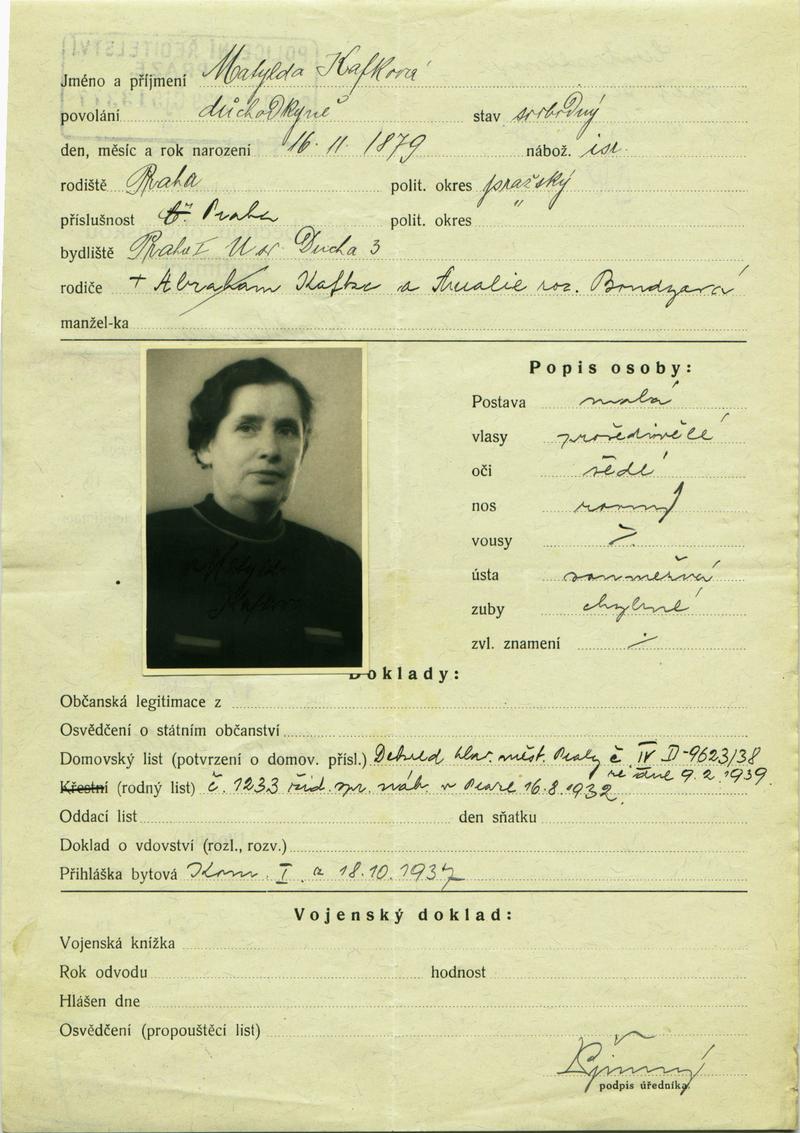 Jméno a příjmení Matylda Kafková
povolání důchodkyně stav svobodný
den, měsíc a rok narození 16. 11. 1879 nábož. isr.
rodiště Praha polit. okres pražský
příslušnost Praha polit. okres "
bydliště Praha I U sv. Ducha 3
rodiče + Abraham Kafka a Amalie roz. Bondyová
manžel-ka
Popis osoby:
Postava malá
vlasy prošedivělé
oči šedé
nos rovný
vousy
ústa souměrná
zuby chybné
zvl. znamení
Doklady:
Občanská legitimace z
Osvědčení o státním občanství
Domovský list (potvrzení o domov. přísl.) hlav. měst. Prahy č. IV D-9623/38
ze dne 9. 2. 1939.
Křestní (rodný list) č. 1233 žid. náb. v Praze 16. 8. 1932.
Oddací list den sňatku
Doklad o vdovství (rozl., rozv.)
Přihláška bytová Kom. I. a 18. 10. 1937
Vojenský doklad:
Vojenská knížka
Rok odvodu hodnost
Hlášen dne
Osvědčení (propouštěcí list)
podpis úředníka.